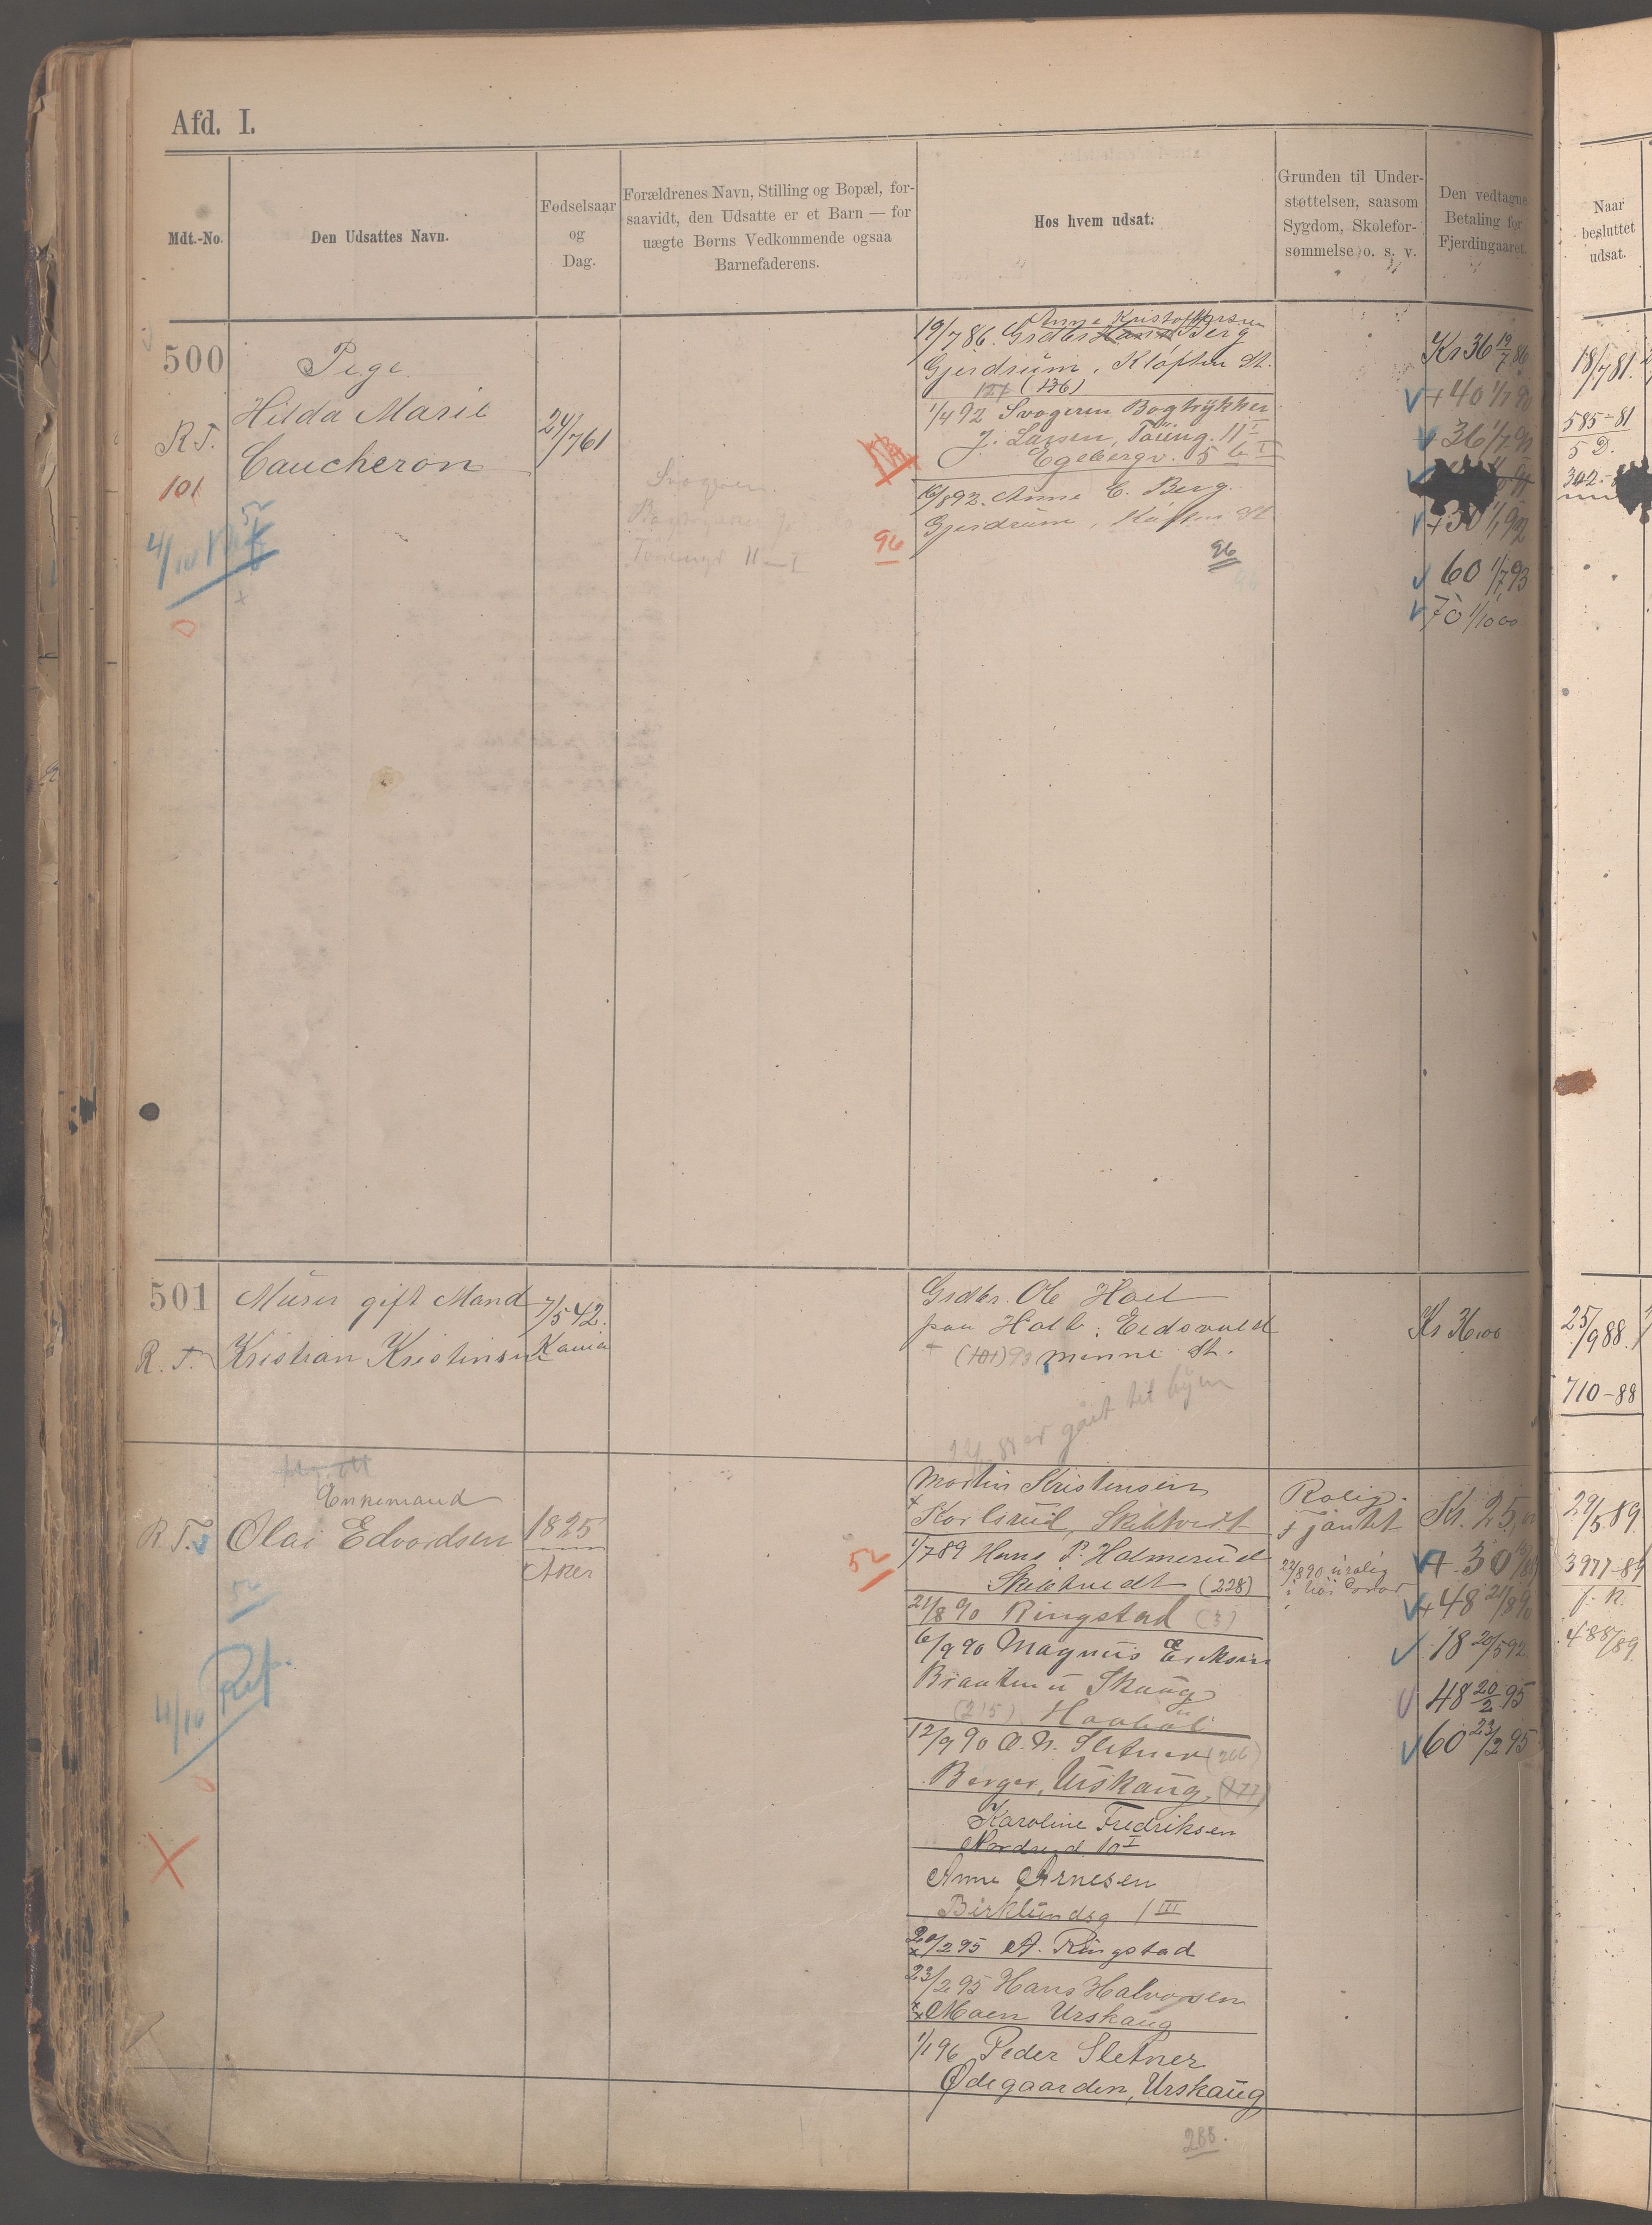 Afd. I.
Mdt.-No.
Den Udsattes Navn.
Fødselsaar
og
Dag.
Forældrenes Navn, Stilling og Bopæl, for-
saavidt, den Udsatte er et Barn — for
uægte Børns Vedkommende ogsaa
Barnefaderens.
Hos hvem udsat.
Grunden til Under-
støttelsen, saasom
Sygdom, Skolefor-
sømmelse o. s. v.
Den vedtagne
Betaling for
Fjerdingaaret.
Naar
besluttet
udsat.
500
R. T.
101
52
4/10
Pige
Hilda Marie
Caucheron
24/761
Svogeren
11 - I
96
Anne Kristoffersen
19/7 86. Grdbr Hans Berg
Gjerdrum, Kløften St.
127 (136)
1/4 92 Svogeren Bogtrykker
J. Larsen, Töieng. 11 I
Egebergv. 5 b I
16/8 92. Anne C. Berg.
Gjerdrum, Kløften St.
96
Kr 36 19/7 86
+ 40 1/7 90
+ 36 1/7 91
+ 30 1/1 92
60 1/7 93
70 1/10 00
18/7 81.
585-81
5 D.
302-
501
R. T.
Murer gift Mand
Kristian Kristinsen
7/5 42.
Kania
Grdbr. Ole Hoel
paa Holt, Eidsvold
(101) 93 Minne St.
er gået til byen
Kr 36,00
25/9 88.
710-88
R. T.
52
4/10 Ret.
Enkemand
Olai Edvardsen
1825
Aker
52
Martin Kristensen
Karlsrud, Skibtvedt
1/7 89 Hans P. Holmerud
Skibtvedt (228)
21/8 90 Ringstad (3)
6/9 90 Magnus Eriksen
Braaten u Skaug
(215) Haabøl
12/9 90 O. N. Sletner (206)
Berger, Urskaug, (177)
Karoline Fredriksen
Nordregd. 10 I
Anne Arnesen
Birklundsg 1 III
20/2 95 A. Ringstad
23/2 95 Hans Halvorsen
Moen Urskaug
1/1 96 Peder Sletner
Ødegaarden, Urskaug
288.
Rolig.
Fjantet
22/8 90 urolig
Kr. 25,00
+ 30
+ 48 21/8 90
18 20/5 92
48 20/2 95
60 23/2 95
29/5 89.
3977-89
f. R.
488/89.